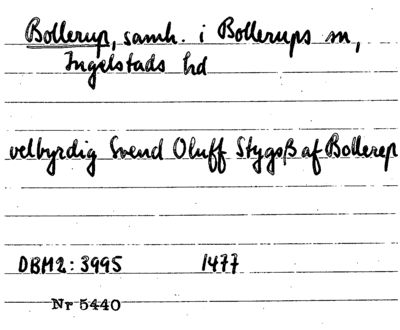 Bollerup, samh. i Bollerups sn,
Ingelstads hd
velbyrdig Svend Oluff Stygsß af Bollerep
DBM2: 3995 1477
Nr 5440